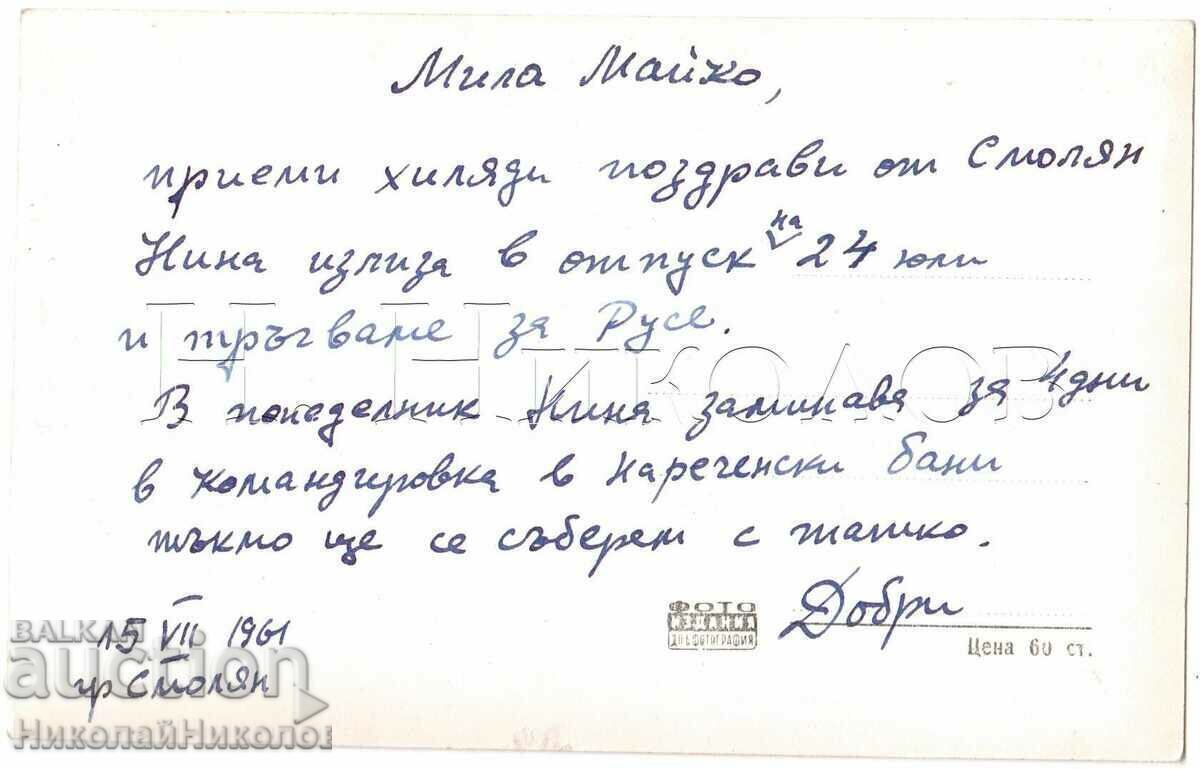 Мила Майко,
приеми хиляди поздрави от Смолян
Нина излиза в отпуск на 24 юли
и тръгваме за Русе.
В понеделник Нина заминава за 4 дни
в командировка в Нареченски бани
тъкмо ще се съберем с татко.
Добри
15 VII 1961
гр Смолян
ФОТО
ИЗДАНИЯ
ДП ФОТОГРАФИЯ
Цена 60 ст.
Н Николов
БАЛКАН
auction
НиколайНиколов